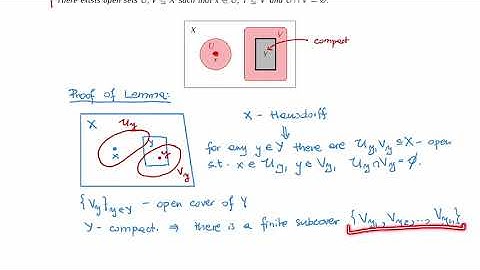 There exists open sets U, V ⊆ X such that x ∈ U, Y ⊆ V and U ∩ V = ∅.
X
U
V
x
Y
compact
Proof of Lemma:
X - Hausdorff
⇓
X
U_y
x
Y
y
V_y
for any y∈Y there are U_y, V_y ⊆ X - open
s.t. x ∈ U_y, y ∈ V_y, U_y ∩ V_y = ∅.
{V_y}_{y∈Y} - open cover of Y
Y - compact. ⇒ there is a finite subcover {V_{y1}, V_{y2}, ..., V_{yn}}